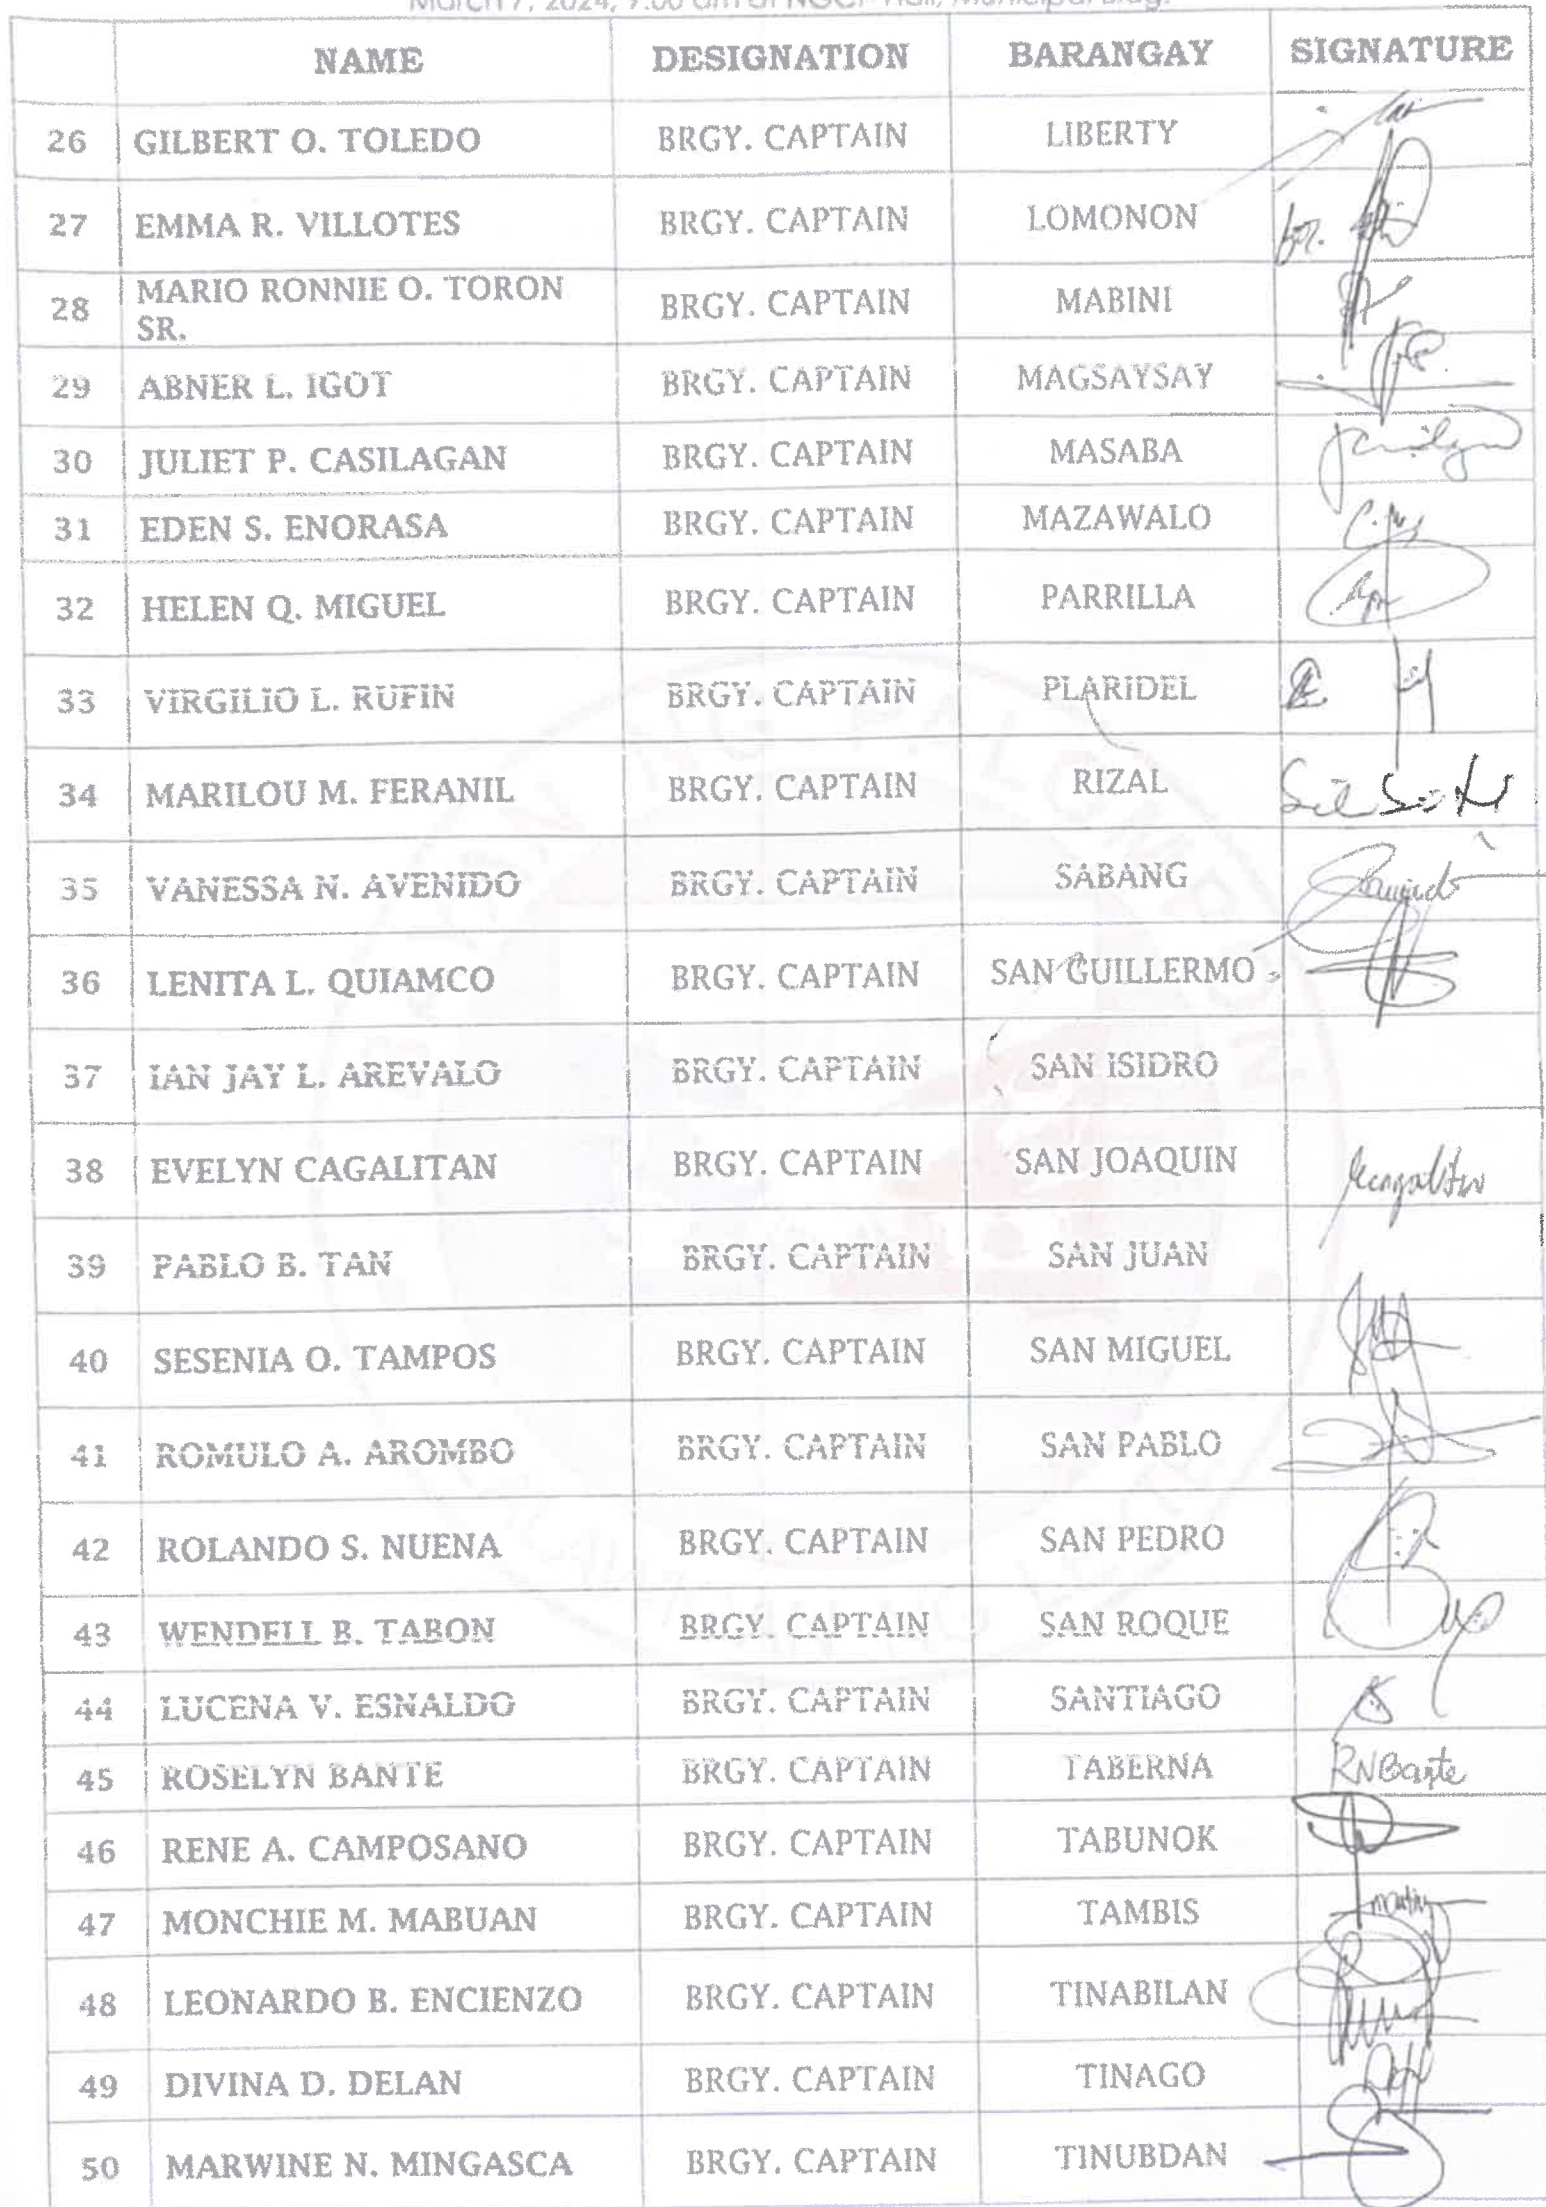 March 7, 2024, 9:00 am at NGCP Hall, Municipal Bldg.
NAME DESIGNATION BARANGAY SIGNATURE
26 GILBERT O. TOLEDO BRGY. CAPTAIN LIBERTY
27 EMMA R. VILLOTES BRGY. CAPTAIN LOMONON for.
28 MARIO RONNIE O. TORON SR. BRGY. CAPTAIN MABINI
29 ABNER L. IGOT BRGY. CAPTAIN MAGSAYSAY
30 JULIET P. CASILAGAN BRGY. CAPTAIN MASABA
31 EDEN S. ENORASA BRGY. CAPTAIN MAZAWALO
32 HELEN Q. MIGUEL BRGY. CAPTAIN PARRILLA
33 VIRGILIO L. RUFIN BRGY. CAPTAIN PLARIDEL
34 MARILOU M. FERANIL BRGY. CAPTAIN RIZAL
35 VANESSA N. AVENIDO BRGY. CAPTAIN SABANG
36 LENITA L. QUIAMCO BRGY. CAPTAIN SAN GUILLERMO
37 IAN JAY L. AREVALO BRGY. CAPTAIN SAN ISIDRO
38 EVELYN CAGALITAN BRGY. CAPTAIN SAN JOAQUIN
39 PABLO B. TAN BRGY. CAPTAIN SAN JUAN
40 SESENIA O. TAMPOS BRGY. CAPTAIN SAN MIGUEL
41 ROMULO A. AROMBO BRGY. CAPTAIN SAN PABLO
42 ROLANDO S. NUENA BRGY. CAPTAIN SAN PEDRO
43 WENDELL B. TABON BRGY. CAPTAIN SAN ROQUE
44 LUCENA V. ESNALDO BRGY. CAPTAIN SANTIAGO
45 ROSELYN BANTE BRGY. CAPTAIN TABERNA RNBante
46 RENE A. CAMPOSANO BRGY. CAPTAIN TABUNOK
47 MONCHIE M. MABUAN BRGY. CAPTAIN TAMBIS
48 LEONARDO B. ENCIENZO BRGY. CAPTAIN TINABILAN
49 DIVINA D. DELAN BRGY. CAPTAIN TINAGO
50 MARWINE N. MINGASCA BRGY. CAPTAIN TINUBDAN